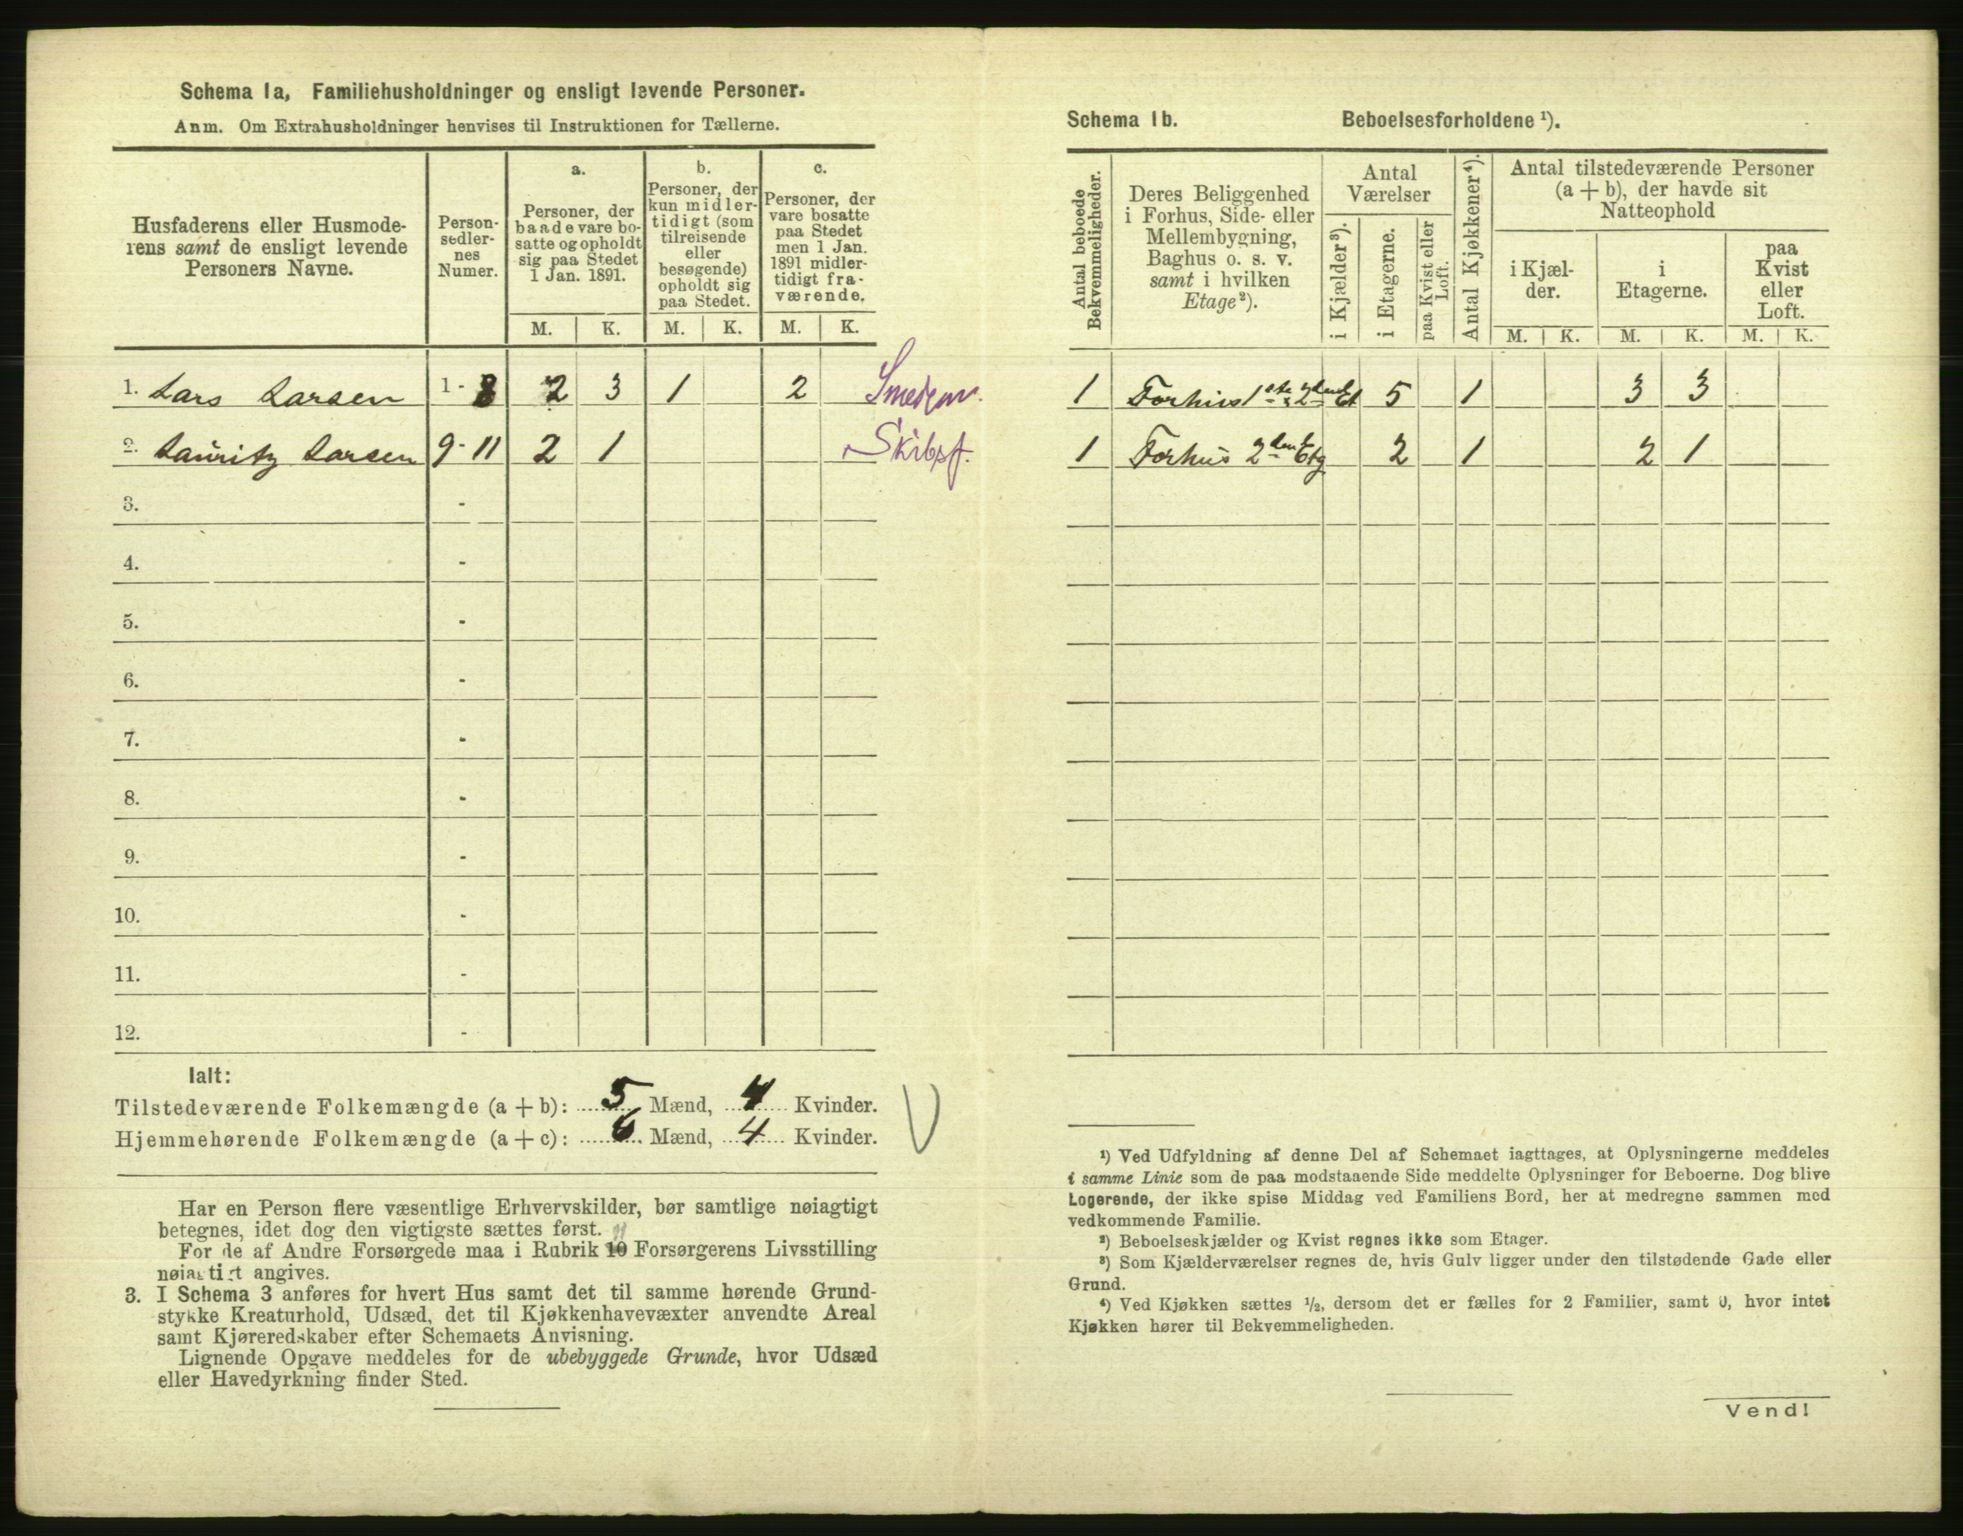 Schema Ia, Familiehusholdninger og ensligt levende Personer.
Anm. Om Extrahusholdninger henvises til Instruktionen for Tællerne.
Husfaderens eller Husmoderens samt de ensligt levende Personers Navne.
Personsedlernes Numer.
a. Personer, der baade vare bosatte og opholdt sig paa Stedet 1 Jan. 1891.
b. Personer, der kun midlertidigt (som tilreisende eller besøgende) opholdt sig paa Stedet.
c. Personer, der vare bosatte paa Stedet men 1 Jan. 1891 midlertidigt fraværende.
M. K. M. K. M. K.
1. Lars Larsen 1-8 2 3 1 2
2. Lauritz Larsen 9-11 2 1 Skibsf.
3. -
4. -
5. -
6. -
7. -
8. -
9. -
10. -
11. -
12. -
Ialt:
Tilstedeværende Folkemængde (a + b): 5 Mænd, 4 Kvinder.
Hjemmehørende Folkemængde (a + c): 6 Mænd, 4 Kvinder.
V
Har en Person flere væsentlige Erhvervskilder, bør samtlige nøiagtigt
betegnes, idet dog den vigtigste sættes først.
For de af Andre Forsørgede maa i Rubrik 10 Forsørgerens Livsstilling
nøiagtigt angives.
3. I Schema 3 anføres for hvert Hus samt det til samme hørende Grund-
stykke Kreaturhold, Udsæd, det til Kjøkkenhavevæxter anvendte Areal
samt Kjøreredskaber efter Schemaets Anvisning.
Lignende Opgave meddeles for de ubebyggede Grunde, hvor Udsæd
eller Havedyrkning finder Sted.
Schema Ib. Beboelsesforholdene ¹).
Antal beboede Bekvemmeligheder.
Deres Beliggenhed i Forhus, Side- eller Mellembygning, Baghus o. s. v. samt i hvilken Etage ²).
Antal Værelser
i Kjælder ³).
i Etagerne.
paa Kvist eller Loft.
Antal Kjøkkener ⁴).
Antal tilstedeværende Personer (a + b), der havde sit Natteophold
i Kjælder.
i Etagerne.
paa Kvist eller Loft.
M. K. M. K. M. K.
1 Forhus 1ste & 2den Et 5 1 3 3
1 Forhus 2den Etg 2 1 2 1
¹) Ved Udfyldning af denne Del af Schemaet iagttages, at Oplysningerne meddeles
i samme Linie som de paa modstaaende Side meddelte Oplysninger for Beboerne. Dog blive
Logerende, der ikke spise Middag ved Familiens Bord, her at medregne sammen med
vedkommende Familie.
²) Beboelseskjælder og Kvist regnes ikke som Etager.
³) Som Kjælderværelser regnes de, hvis Gulv ligger under den tilstødende Gade eller
Grund.
⁴) Ved Kjøkken sættes ½, dersom det er fælles for 2 Familier, samt 0, hvor intet
Kjøkken hører til Bekvemmeligheden.
Vend!